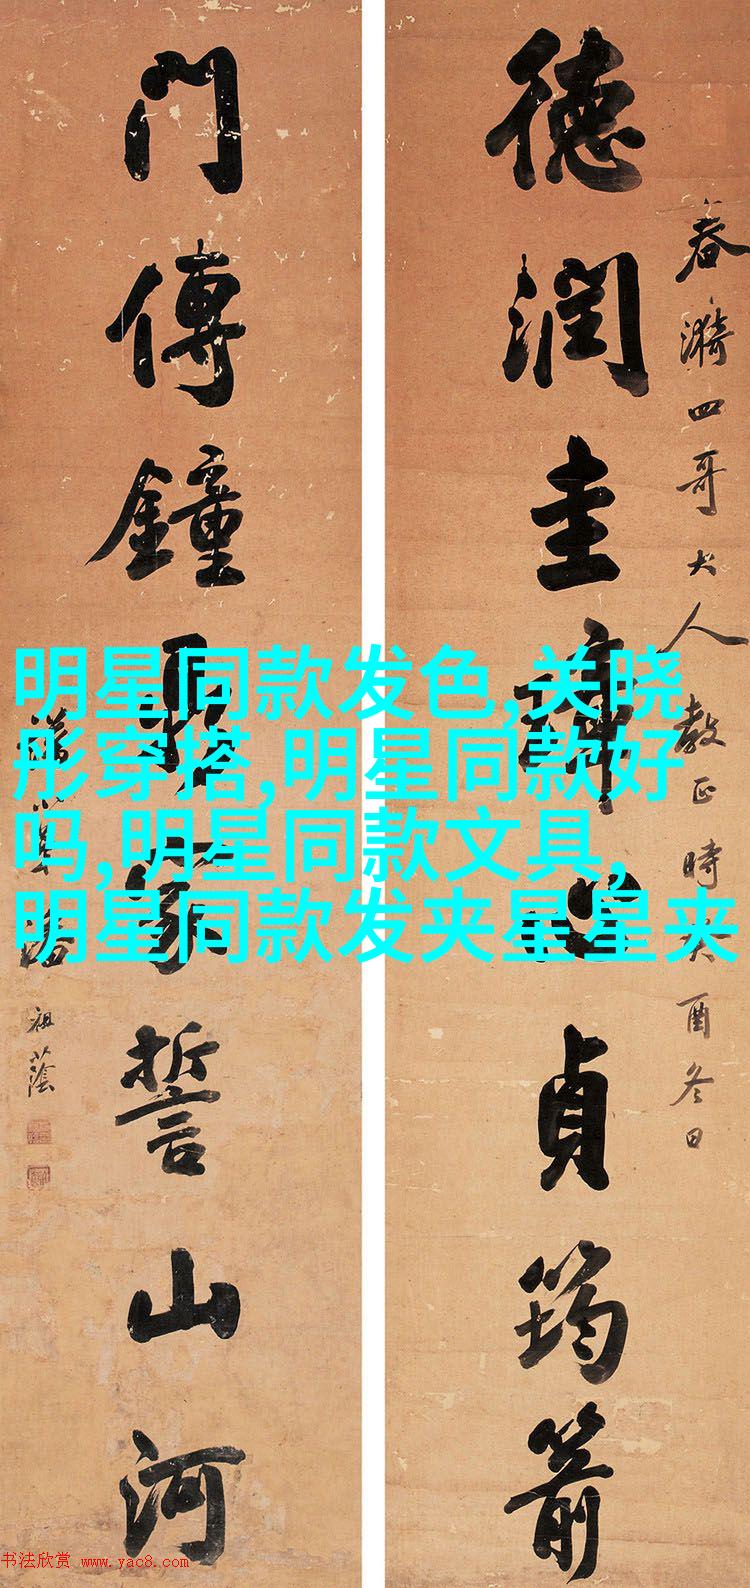 德潤圭璋心貞筠箭
春漪四哥大人教正時癸酉冬日
門傳鐘鼎家誓山河
祖蔭
明星同款发色,关晓
彤穿搭,明星同款好
吗,明星同款文具,
明星同款发夹星星夹
书法欣赏 www.yac8.com